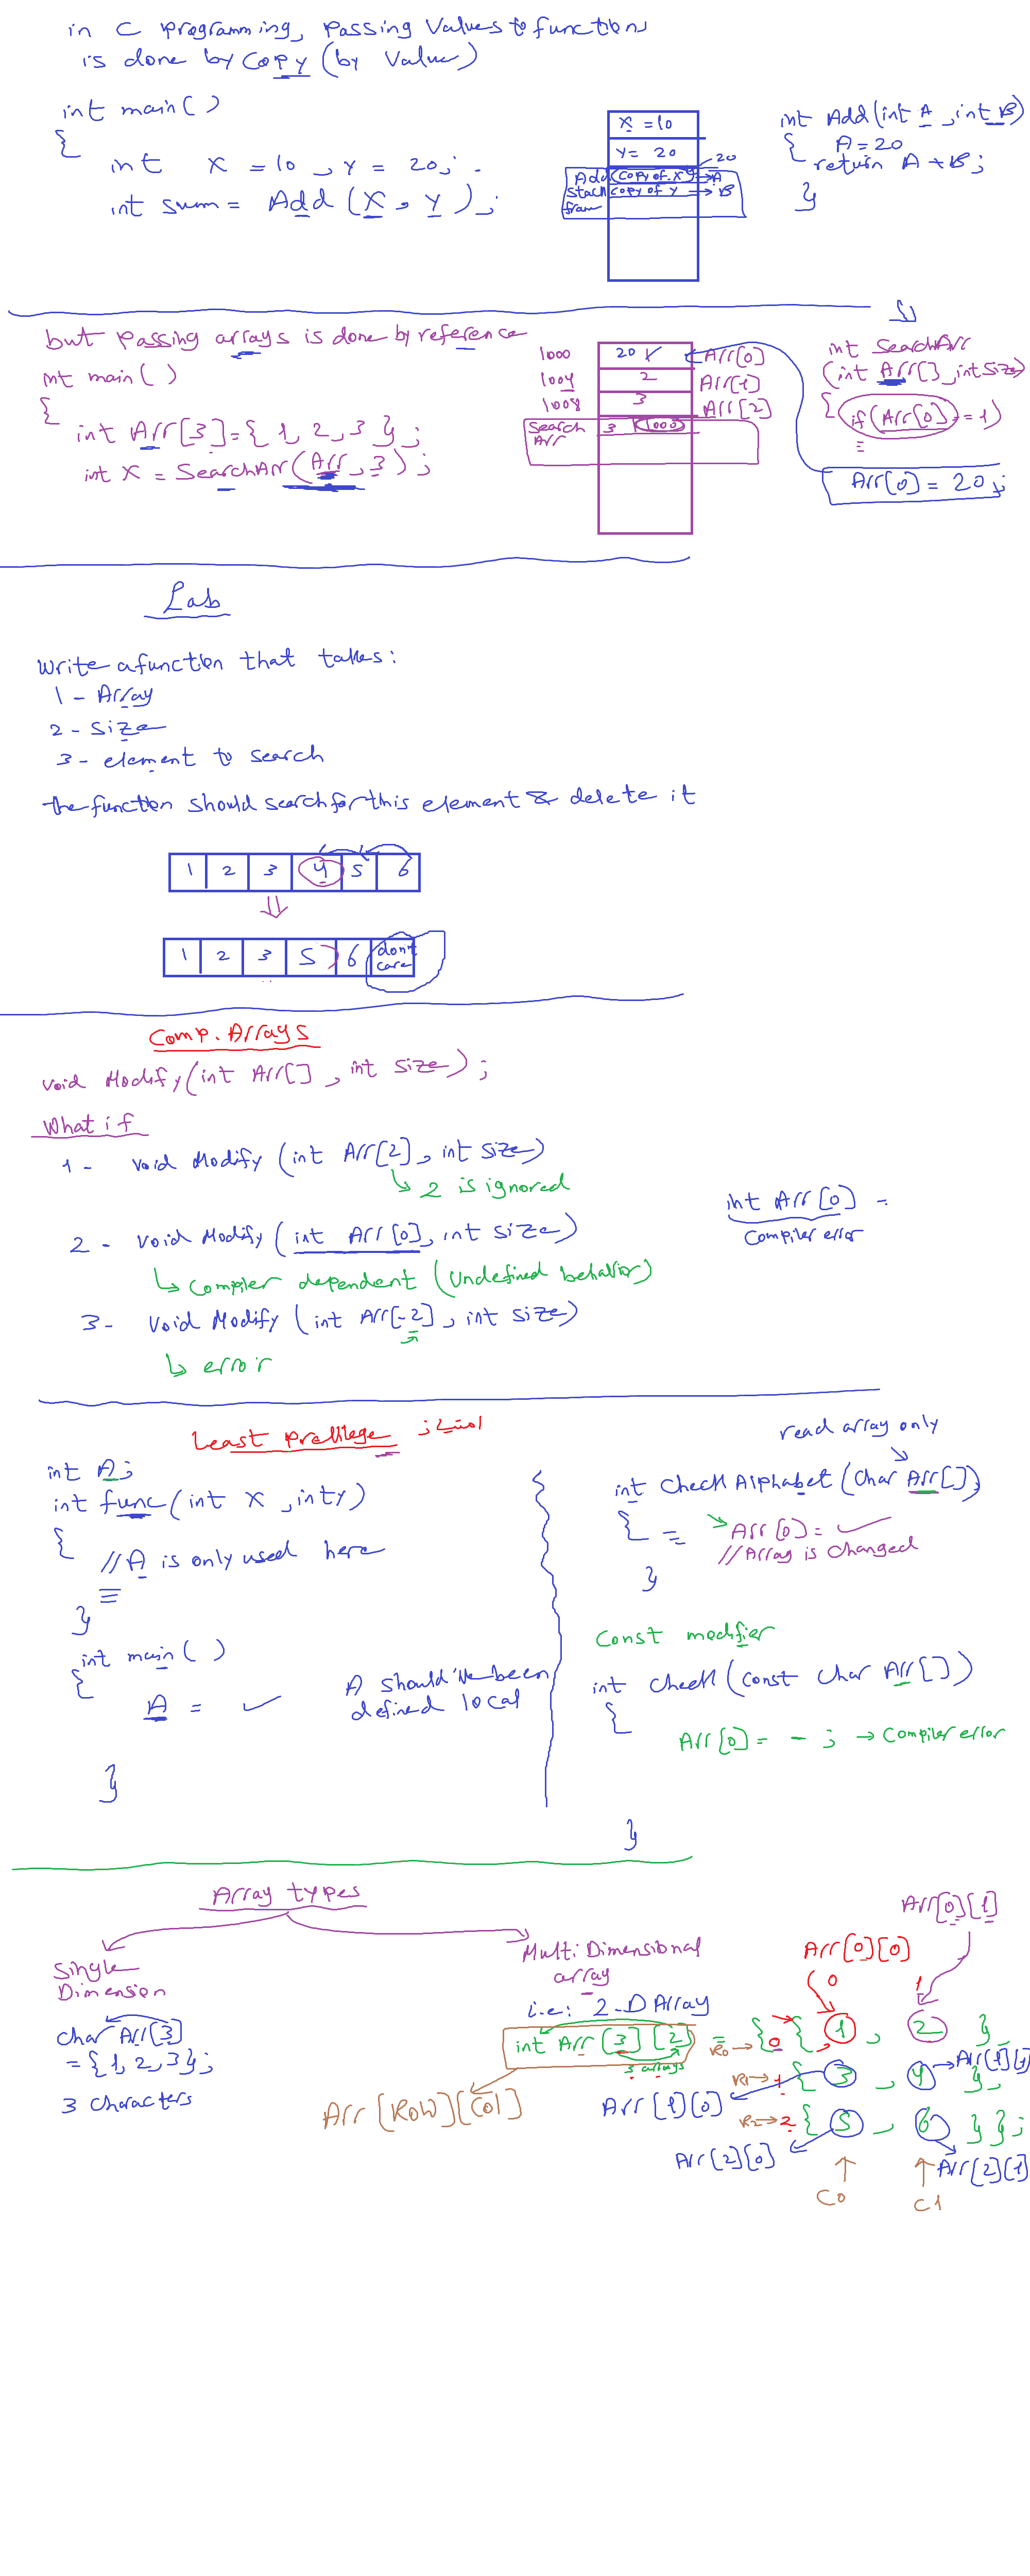 in C programming, passing values to functions
is done by copy (by value)
int main( )
{
int X = 10 , Y = 20;
int sum = Add (X , Y) ;
X = 10
Y = 20
20
Add (copy of X) → A
stack copy of Y → B
fram
int Add(int A , int B)
{ A = 20
return A + B ;
}
but passing arrays is done by reference
int main( )
{
int Arr[3] = { 1, 2, 3 } ;
int X = SearchArr(Arr, 3) ;
1000 20 Arr[0]
1004 2 Arr[1]
1008 3 Arr[2]
Search 3 1000
Arr
int SearchArr
(int Arr[] , int size)
{ if (Arr[0] == 1)
Arr[0] = 20 ;
Lab
Write a function that takes:
1 - Array
2 - size
3 - element to search
the function should search for this element & delete it
1 2 3 4 5 6
1 2 3 5 6 don't care
Comp. Arrays
void Modify(int Arr[] , int size) ;
What if
1 - void Modify (int Arr[2] , int size)
2 is ignored
2 - void Modify (int Arr[0] , int size)
compiler dependent (undefined behavior)
int Arr[0] =
compiler error
3 - void Modify (int Arr[-2] , int size)
error
Least Prellilege امتياز
int A;
int func(int X , int y)
{
// A is only used here
}
int main( )
{
A =
A should've been
defined local
}
read array only
int checkAlphabet (char Arr[])
{ = Arr[0] =
// Array is changed
}
Const modifier
int check (const char Arr[])
{
Arr[0] = - ; → compiler error
}
Array types
Single
Dimension
char Arr[3]
= {1, 2, 3};
3 characters
Multi Dimensional
array
i.e: 2-D Array
int Arr [3] [2] =
3 arrays
Arr [Row][Col]
Arr[0][1]
Arr[0][0]
0 1
R0 → { 0 { 1 , 2 } ,
R1 → 1 { 3 , 4 } , Arr[1][1]
Arr[1][0]
R2 → 2 { 5 , 6 } } ;
Arr[2][0] Arr[2][1]
C0 C1